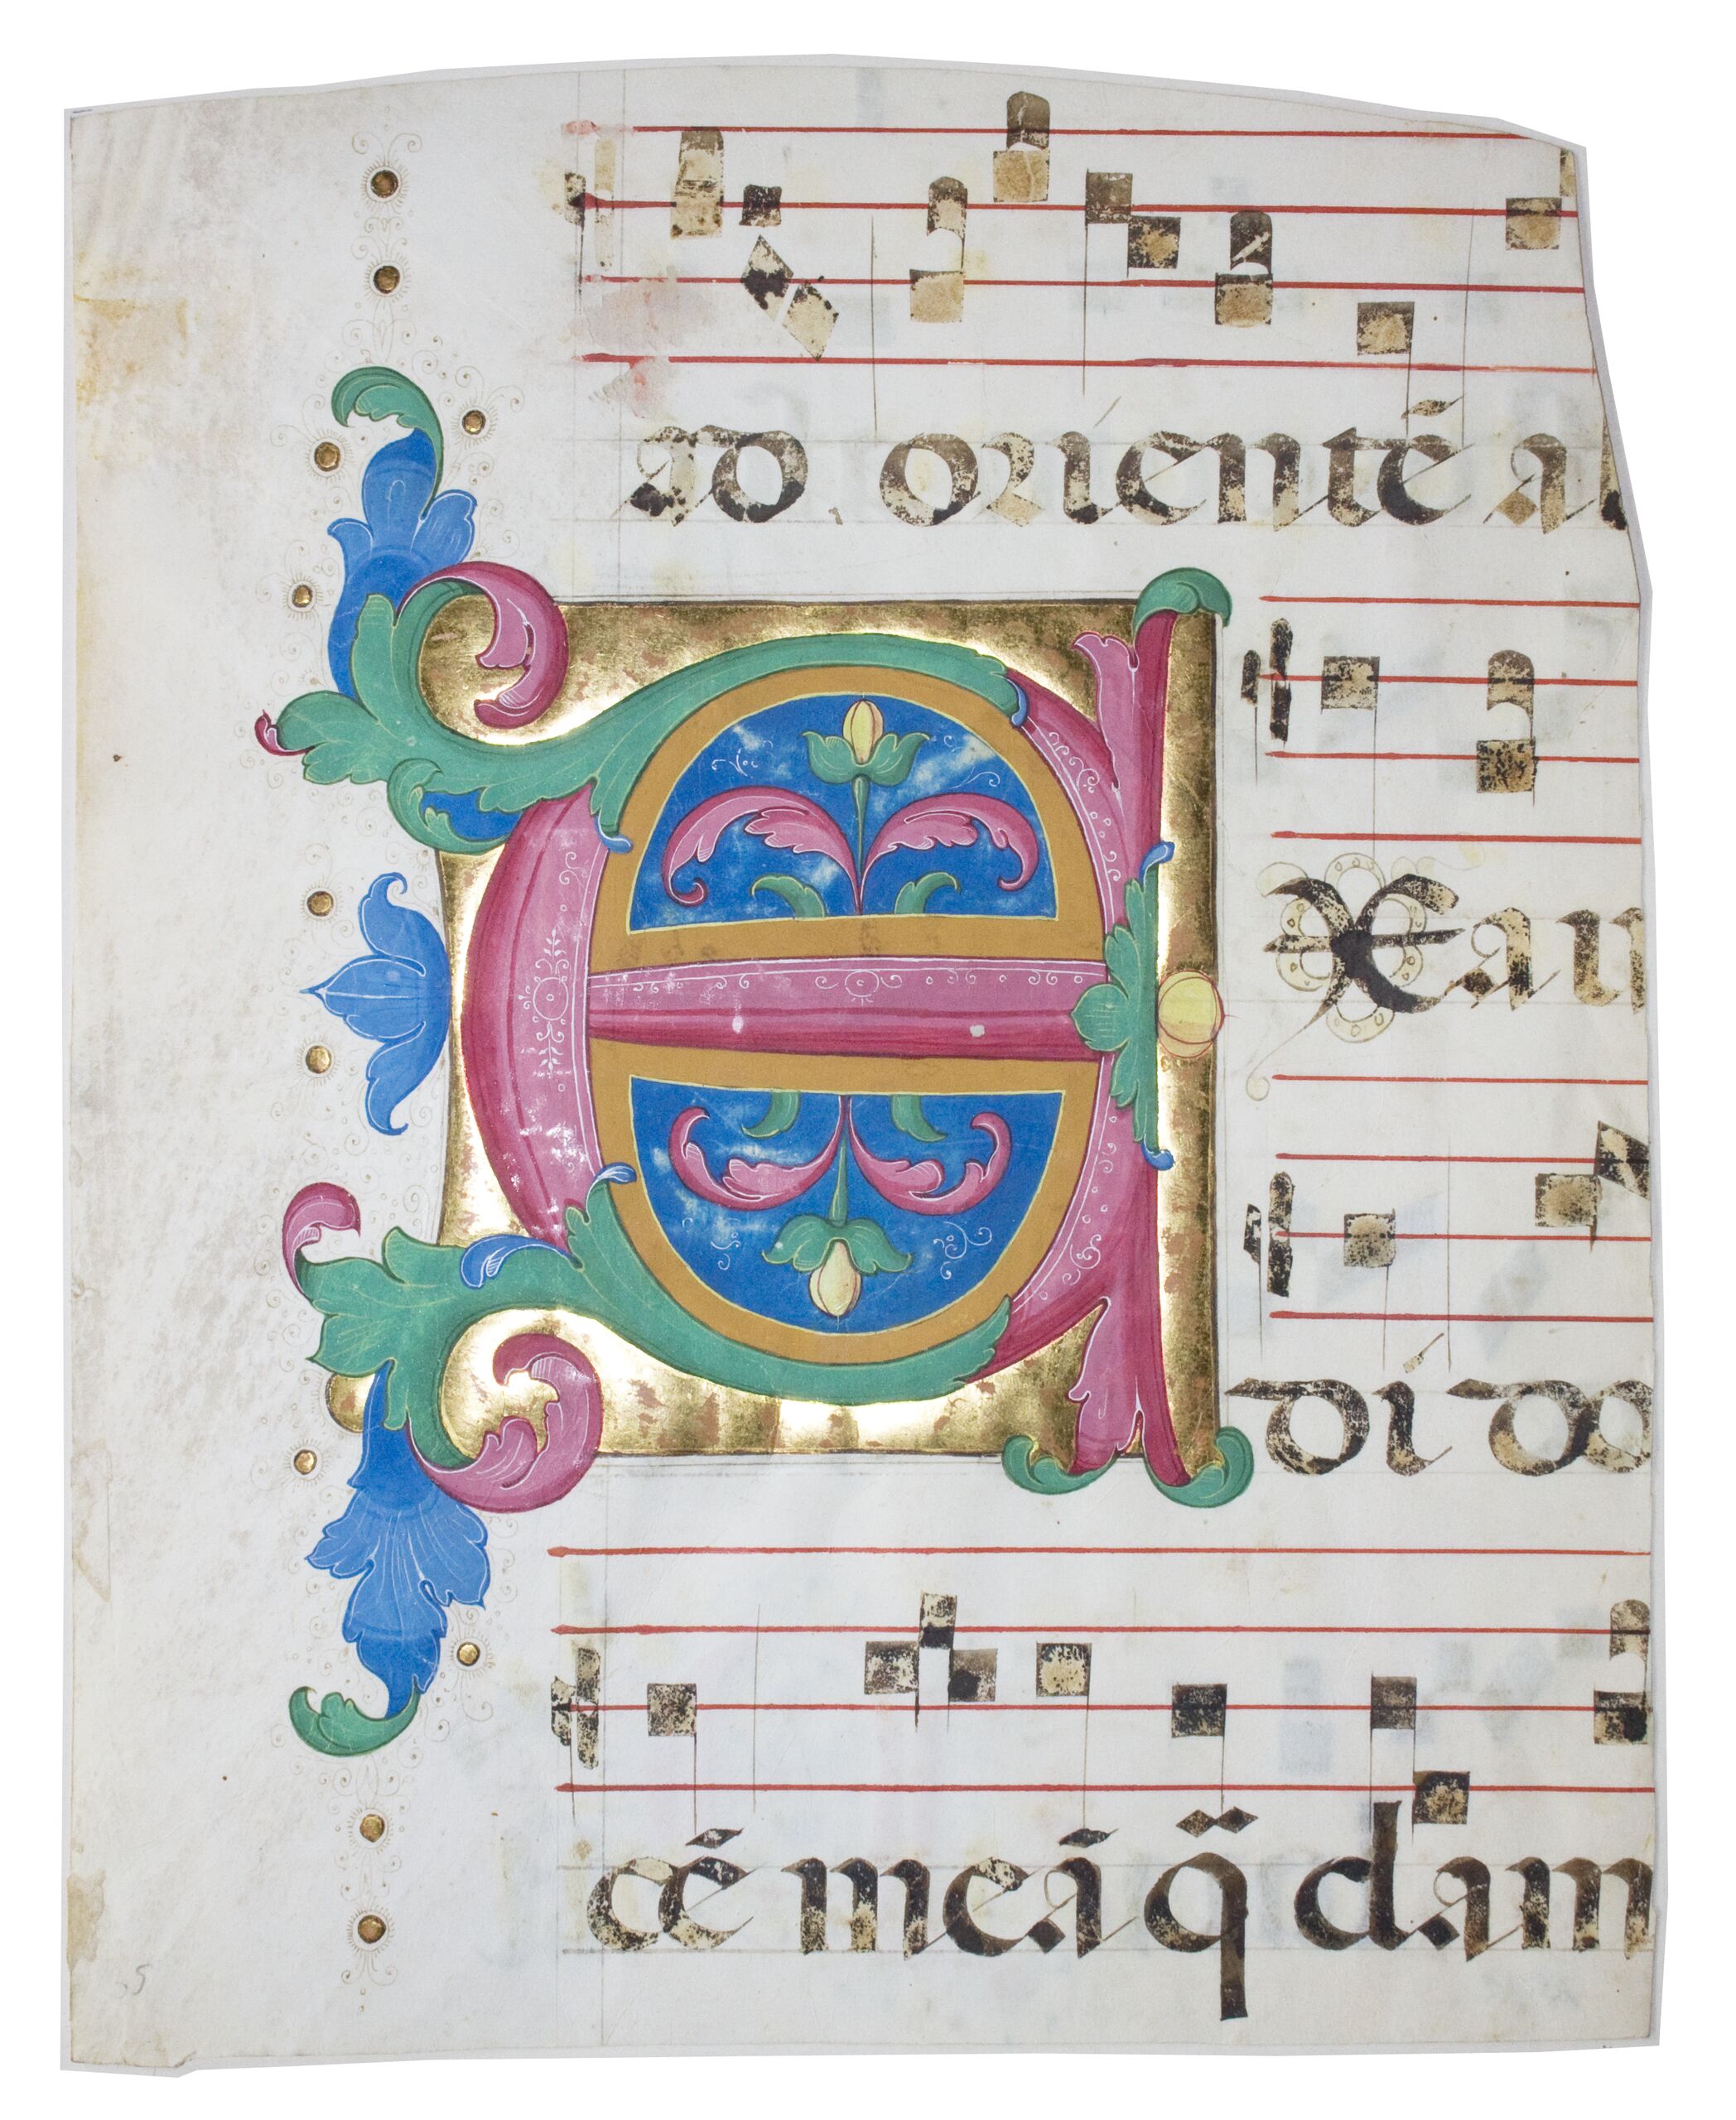 ad orientē al
EXau
di do
cē meā q̃ clam
5